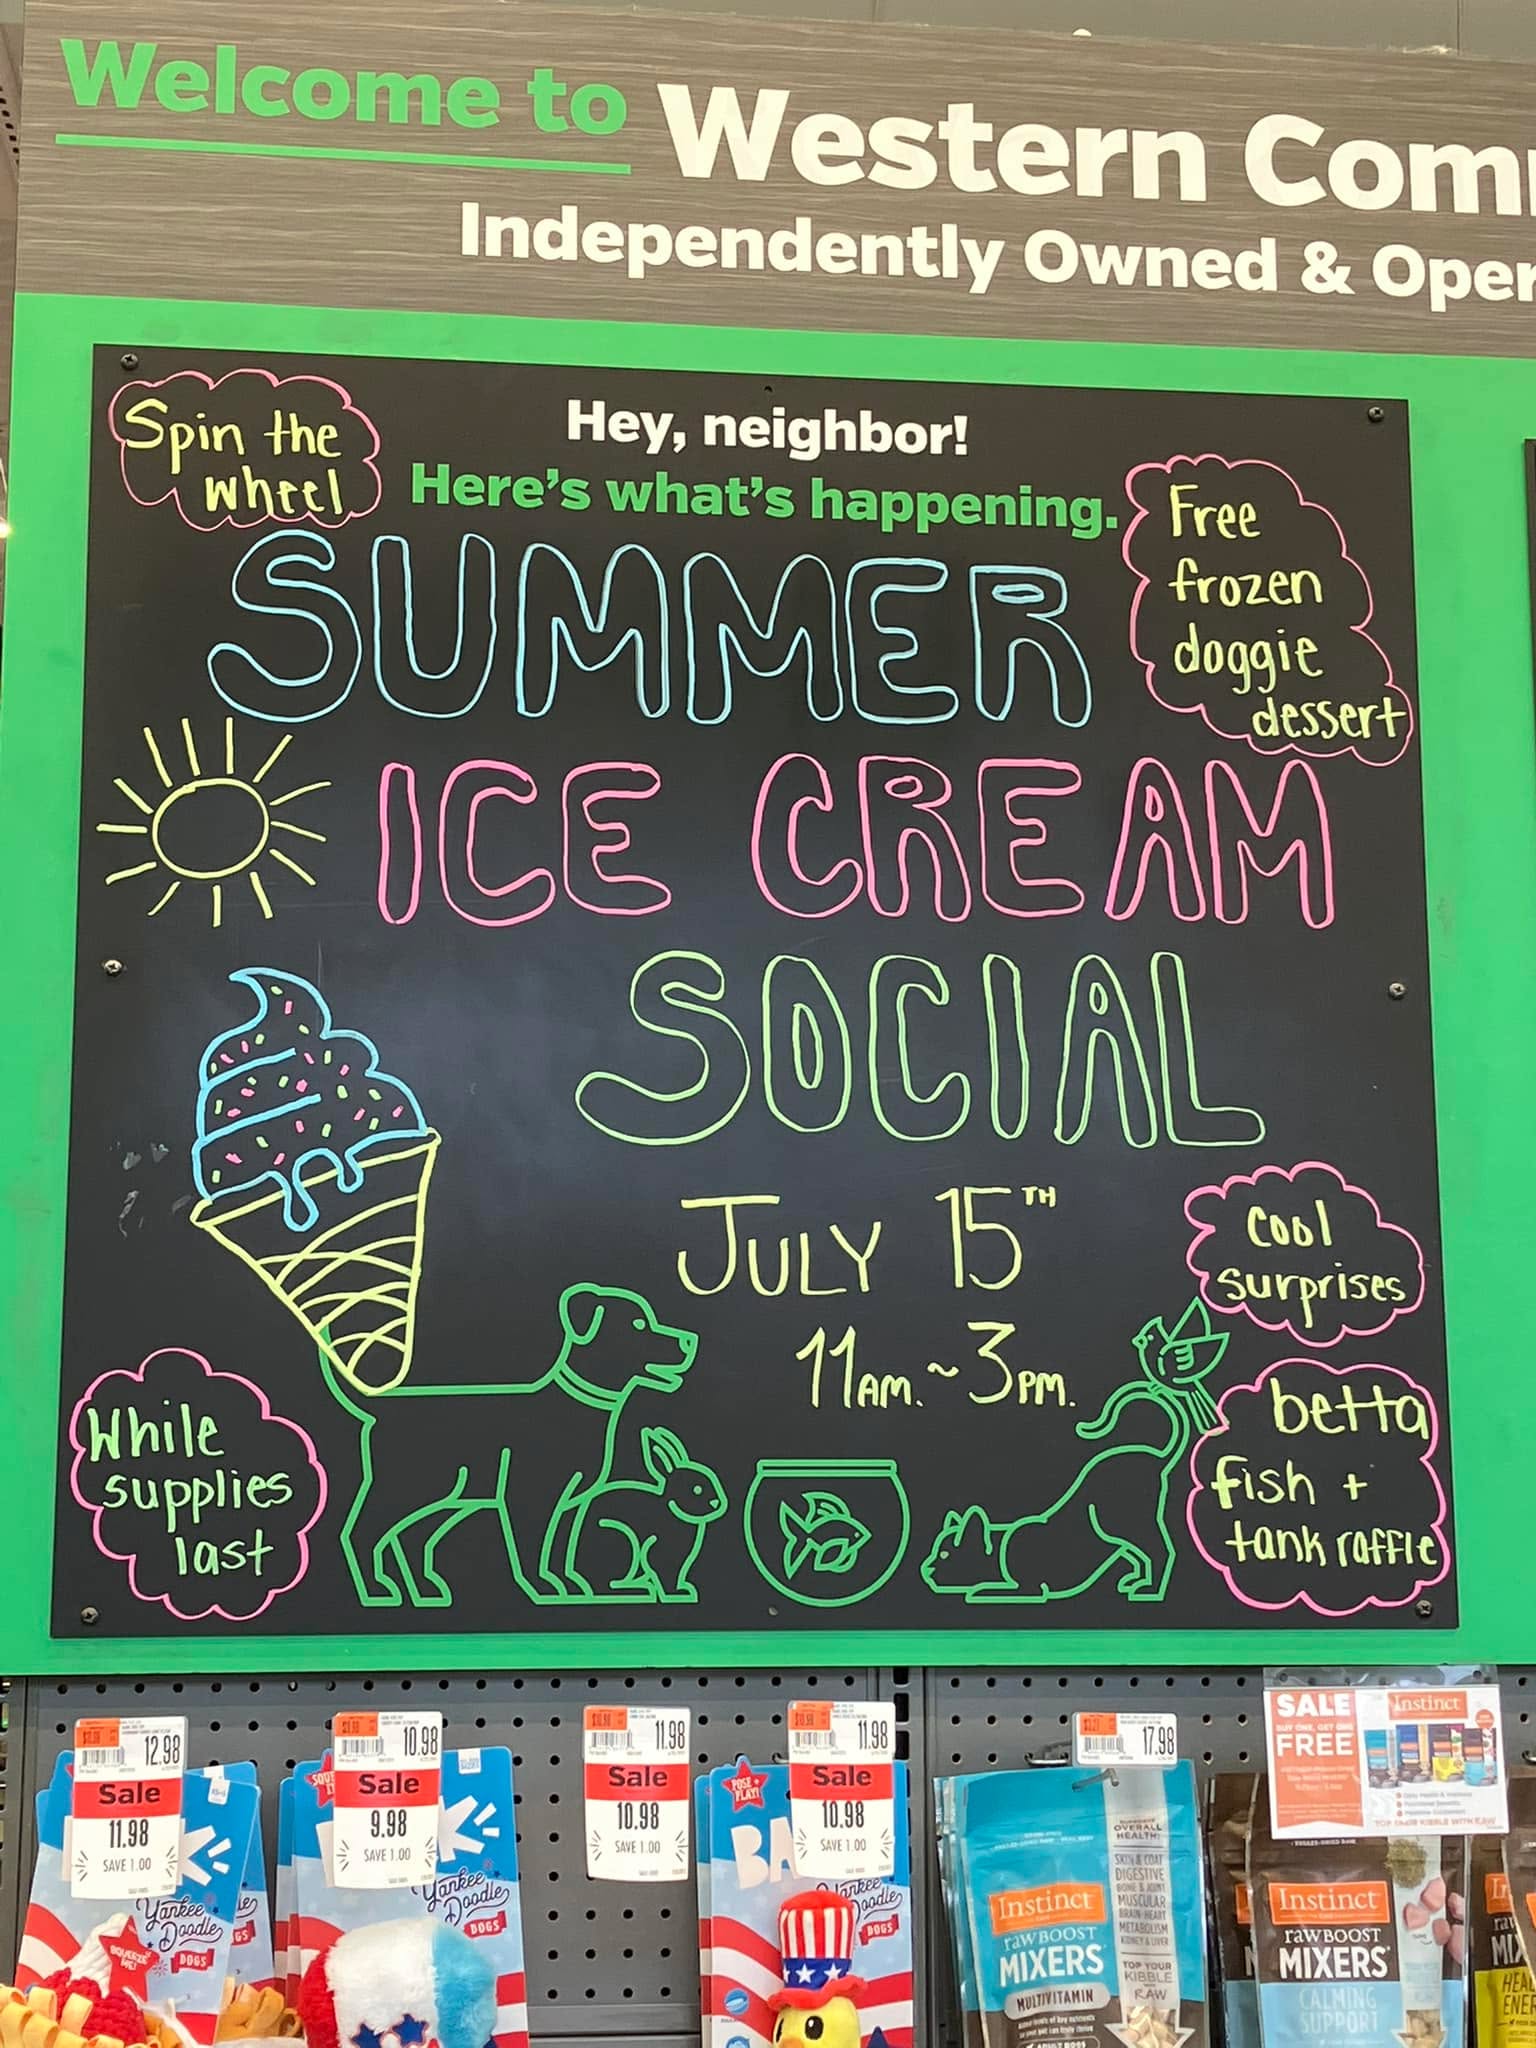 Welcome to Western Com
Independently Owned & Oper
Spin the
wheel
Hey, neighbor!
Here's what's happening.
Free
frozen
doggie
dessert
SUMMER
ICE CREAM
SOCIAL
JULY 15TH
11AM. ~ 3PM.
cool
surprises
While
supplies
last
betta
fish +
tank raffle
12.98
Sale
11.98
SAVE 1.00
10.98
Sale
9.98
SAVE 1.00
11.98
Sale
10.98
SAVE 1.00
11.98
Sale
10.98
SAVE 1.00
17.98
SALE
BUY ONE, GET ONE
FREE
Instinct
Yankee
Doodle
DOGS
SQUEEZE
ME!
Yankee
Doodle
DOGS
POSE +
PLAY!
BA
Yankee
Doodle
DOGS
OVERALL
HEALTH:
SKIN & COAT
DIGESTIVE
BONE & JOINT
MUSCULAR
BRAIN-HEART
METABOLISM
KIDNEY & LIVER
TOP YOUR
KIBBLE
WITH
RAW
Instinct
RAWBOOST
MIXERS
MULTIVITAMIN
Instinct
RAWBOOST
MIXERS
CALMING
SUPPORT